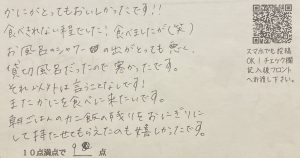 かにがとってもおいしかったです!!
食べきれない程でした! 食べましたが(笑)
お風呂のシャワーの出がとっても悪く、
貸切風呂だったので寒かったです。
それ以外は言うことなしです!
またかにを食べに来たいです。
朝ごはんのカニ飯の残りをおにぎりに
して持たせてもらえたのも嬉しかったです。
10点満点で 9 点
スマホでも投稿
OK!チェック欄
記入後フロント
へお渡し下さい。